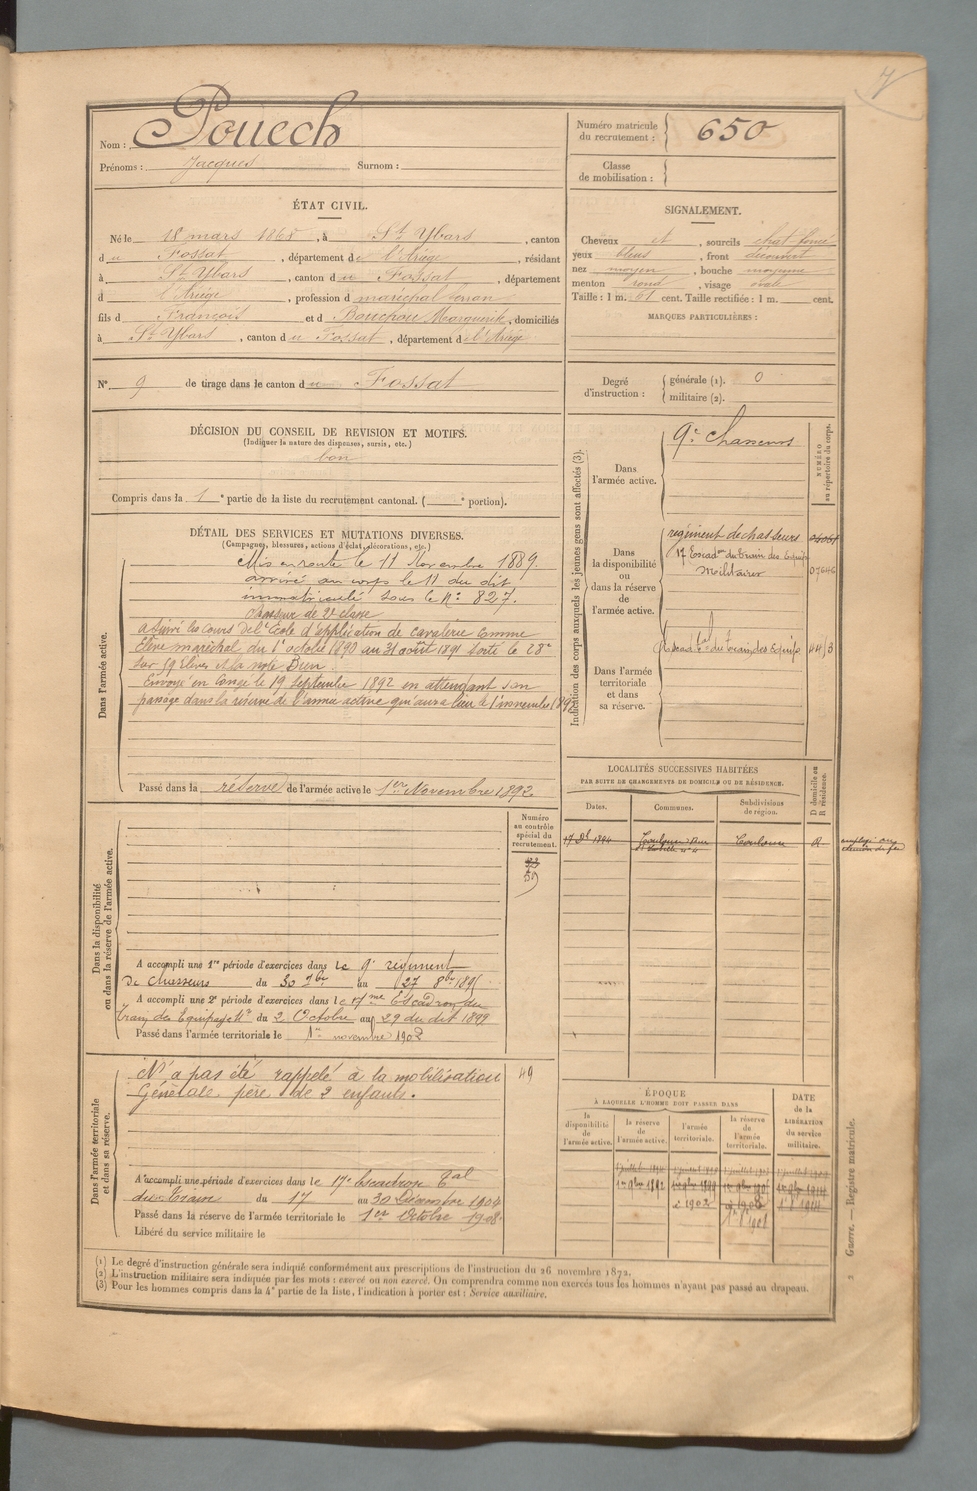 7
Nom : Pouech
Prénoms : Jacques Surnom :
Numéro matricule du recrutement : 650
Classe de mobilisation :
ÉTAT CIVIL.
Né le 18 mars 1868, à St Ybars, canton
du Fossat, département de l'Ariège, résidant
à St Ybars, canton du Fossat, département
d l'Ariège, profession d maréchal ferrant
fils d François et d Bouchou Marguerite, domiciliés
à St Ybars, canton du Fossat, département d l'Ariège
N° 9 de tirage dans le canton du Fossat
SIGNALEMENT.
Cheveux et, sourcils chat. foncé
yeux bleus, front découvert
nez moyen, bouche moyenne
menton rond, visage ovale
Taille : 1 m. 61 cent. Taille rectifiée : 1 m. cent.
MARQUES PARTICULIÈRES :
Degré d'instruction : générale (1). 0
militaire (2).
DÉCISION DU CONSEIL DE REVISION ET MOTIFS.
(Indiquer la nature des dispenses, sursis, etc.)
bon
Compris dans la 1e partie de la liste du recrutement cantonal. ( e portion).
DÉTAIL DES SERVICES ET MUTATIONS DIVERSES.
(Campagnes, blessures, actions d'éclat, décorations, etc.)
Dans l'armée active.
Mis en route le 11 Novembre 1889.
arrivé au corps le 11 du dit
immatriculé sous le N° 827.
Chasseur de 2e classe
A suivi les cours de l'École d'application de cavalerie comme
Élève maréchal du 1r octobre 1890 au 31 août 1891 Sorti le 28e
sur 59 élèves et la note Bien.
Envoyé en congé le 19 Septembre 1892 en attendant son
passage dans la réserve de l'armée active qui aura lieu le 1r novembre 1892
Passé dans la réserve de l'armée active le 1er Novembre 1892
Indication des corps auxquels les jeunes gens sont affectés (3).
NUMÉRO au répertoire du corps.
Dans l'armée active.
9e Chasseurs
Dans la disponibilité ou dans la réserve de l'armée active.
régiment de chasseurs
17 Escadon du Train des Equip
Militaires 07646
Dans l'armée territoriale et dans sa réserve.
LOCALITÉS SUCCESSIVES HABITÉES
PAR SUITE DE CHANGEMENTS DE DOMICILE OU DE RÉSIDENCE.
Dates. Communes. Subdivisions de région. D domicile ou R résidence.
Toulouse R
Dans la disponibilité ou dans la réserve de l'armée active.
Numéro au contrôle spécial du recrutement.
A accompli une 1re période d'exercices dans le 9e régiment
de chasseurs du 30 7bre au 27 8bre 1895
A accompli une 2e période d'exercices dans le 17me Escadron du
Train des Equipages Mre du 2 Octobre au 29 du dit 1899
Passé dans l'armée territoriale le 1er novembre 1902
Dans l'armée territoriale et dans sa réserve.
N'a pas été rappelé à la mobilisation 49
Générale père de 2 enfants.
A accompli une période d'exercices dans le 17e Escadron Tal
du Train du 17 au 30 Décembre 1904
Passé dans la réserve de l'armée territoriale le 1er Octobre 1908.
Libéré du service militaire le
ÉPOQUE
À LAQUELLE L'HOMME DOIT PASSER DANS
la disponibilité de l'armée active. la réserve de l'armée active. l'armée territoriale. la réserve de l'armée territoriale. DATE de la LIBÉRATION du service militaire.
(1) Le degré d'instruction générale sera indiqué conformément aux prescriptions de l'instruction du 26 novembre 1872.
(2) L'instruction militaire sera indiquée par les mots : exercé ou non exercé. On comprendra comme non exercés tous les hommes n'ayant pas passé au drapeau.
(3) Pour les hommes compris dans la 4e partie de la liste, l'indication à porter est : Service auxiliaire.
2 Guerre. — Registre matricule.